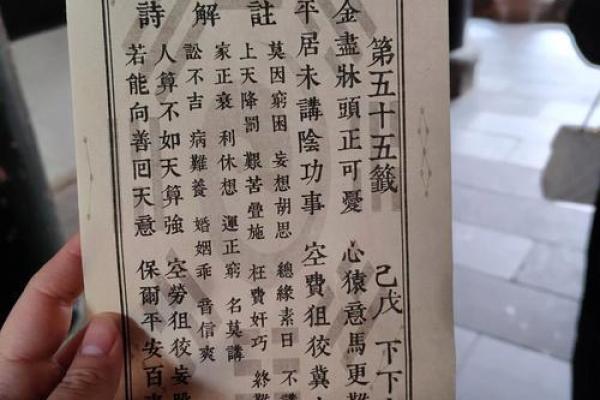 第五十五籤 己戊 下下
金盡牀頭正可憂 心猿意馬更難
平居未講陰功事 空費狙狡冀
註
莫因窮困 妄想胡思 總緣素日 不講
上天降罰 艱苦疊施 枉費奸巧 終難
解
家正衰 利休想 運正窮 名莫講
訟不吉 病難養 婚姻乖 音信爽
詩
人算不如天算強 空勞狙狡妄
若能向善回天意 保爾平安百